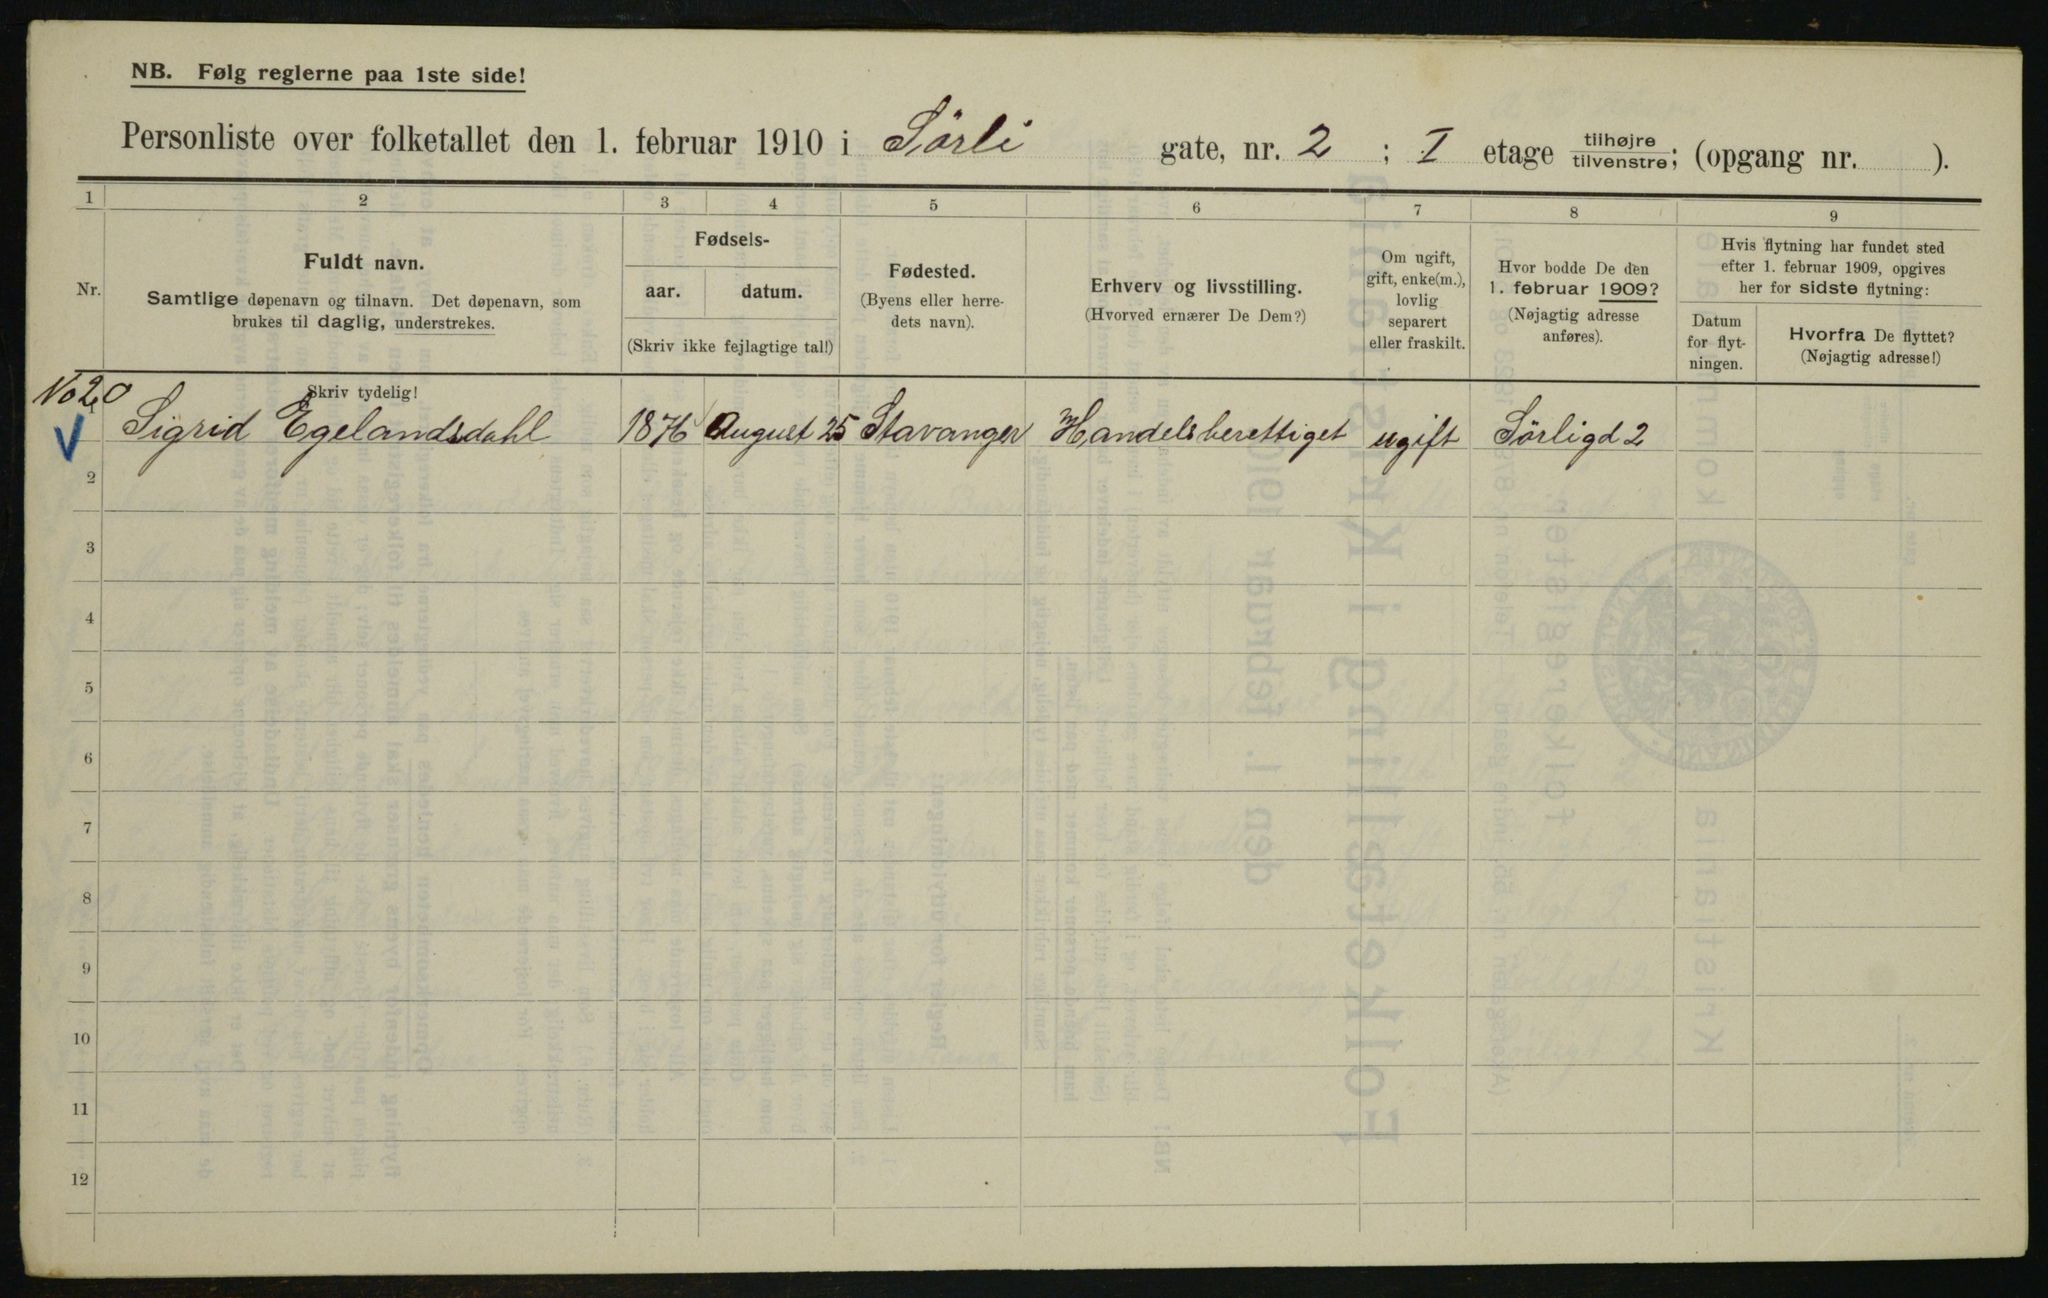 NB. Følg reglerne paa 1ste side!
Personliste over folketallet den 1. februar 1910 i Sörli gate, nr. 2 ; I etage tilhøjre tilvenstre; (opgang nr. ).
1 2 3 4 5 6 7 8 9
Nr.
Fuldt navn.
Samtlige døpenavn og tilnavn. Det døpenavn, som
brukes til daglig, understrekes.
Fødsels-
aar. datum.
(Skriv ikke fejlagtige tal!)
Fødested.
(Byens eller herre-
dets navn).
Erhverv og livsstilling.
(Hvorved ernærer De Dem?)
Om ugift,
gift, enke(m.),
lovlig
separert
eller fraskilt.
Hvor bodde De den
1. februar 1909?
(Nøjagtig adresse
anføres).
Hvis flytning har fundet sted
efter 1. februar 1909, opgives
her for sidste flytning:
Datum
for flyt-
ningen.
Hvorfra De flyttet?
(Nøjagtig adresse!)
Skriv tydelig!
No 20
1 Sigrid Egelandsdahl 1876 August 25 Stavanger Handelsberettiget ugift Sörligd 2
2
3
4
5
6
7
8
9
10
11
12